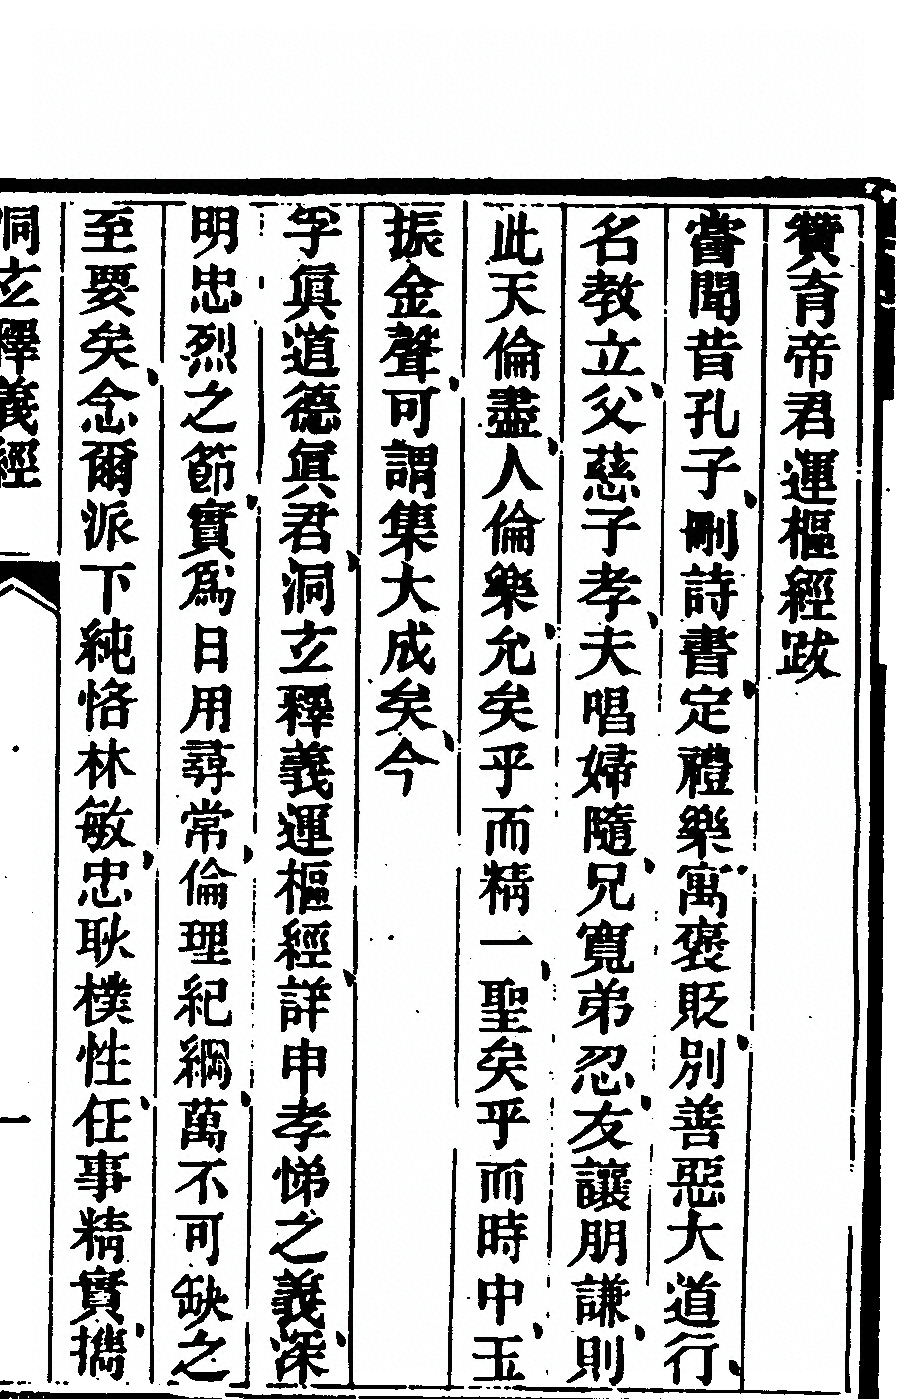 贊育帝君運樞經跋
嘗聞昔孔子刪詩書定禮樂寓褒貶別善惡大道行
名教立父慈子孝夫唱婦隨兄寬弟忍友讓朋謙則
此天倫盡人倫樂允矣乎而精一聖矣乎而時中玉
振金聲可謂集大成矣今
孚眞道德眞君洞玄釋義運樞經詳申孝悌之義深
明忠烈之節實爲日用尋常倫理紀綱萬不可缺之
至要矣念爾派下純恪林敏忠耿樸性任事精實攜
洞玄釋義經
一